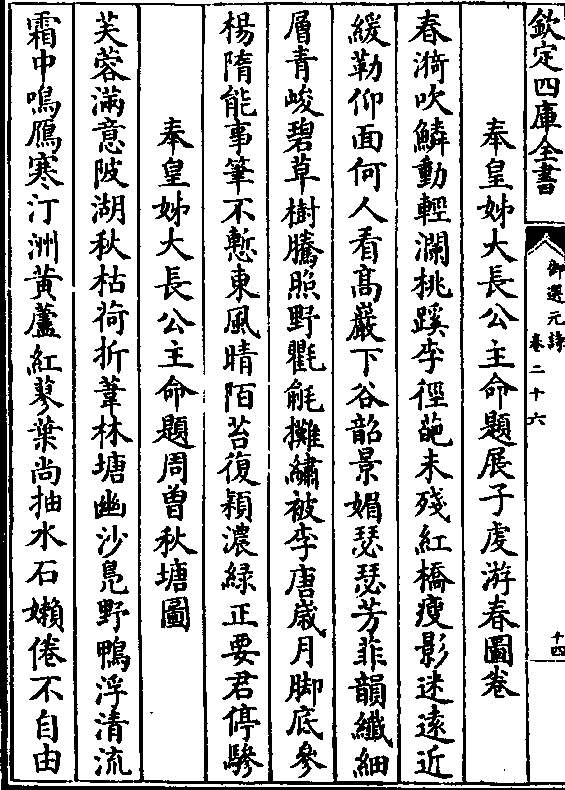 欽定四庫全書
御選元詩
卷二十六
十四
奉皇姊大長公主命題展子虔游春圖卷
春漪吹鱗動輕瀾桃蹊李徑葩未殘紅橋瘦影迷遠近
緩勒仰面何人看高巖下谷韶景媚瑟瑟芳菲韻纖細
層青峻碧草樹騰照野氍毹攤繡被李唐歲月脚底參
楊隋能事筆不慙東風晴陌苔復穎濃綠正要君停驂
奉皇姊大長公主命題周曾秋塘圖
芙蓉滿意陂湖秋枯荷折葦林塘幽沙鳧野鴨浮清流
霜中鳴鴈寒汀洲黃蘆紅蓼葉尚抽水石嬾倦不自由